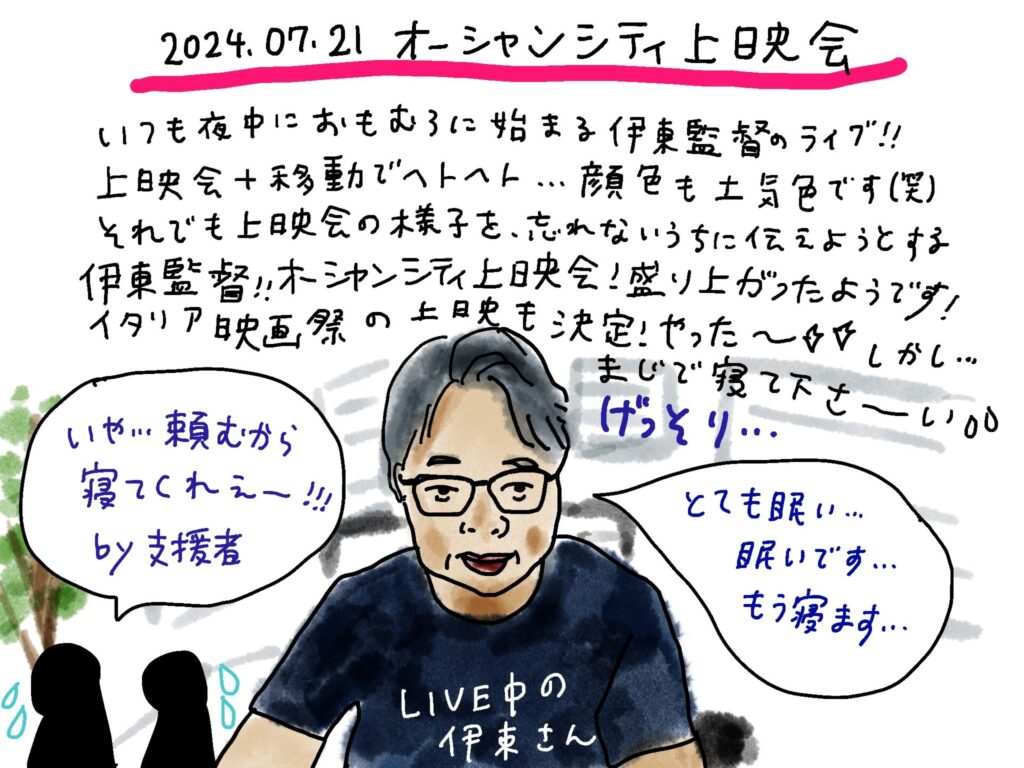 2024.07.21 オーシャンシティ上映会
いつも夜中におもむろに始まる伊東監督のライブ!!
上映会+移動でヘトヘト...顔色も土気色です(笑)
それでも上映会の様子を、忘れないうちに伝えようとする
伊東監督!!オーシャンシティ上映会!盛り上がったようです!
イタリア映画祭の上映も決定!やった〜 しかし...
まじで寝て下さ〜い
げっそり...
いや...頼むから
寝てくれぇー!!!
by 支援者
とても眠い...
眠いです...
もう寝ます...
LIVE中の
伊東さん